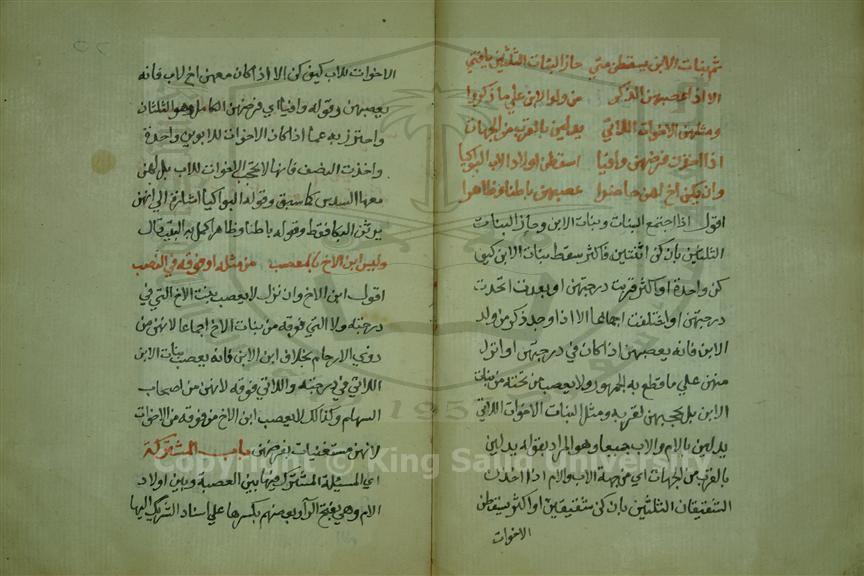 ثم بنات الابن يسقطن متى حاز البنات الثلثين يا فتى
الا اذا عصبهن الذكر من ولد الابن على ما ذكروا
ومثلهن الاخوات اللاتي يدلين بالقرب من الجهات
اذا اخذن فرضهن وافيا اسقطن اولاد الاب البواكيا
وان يكن اخ لهن حاضرا عصبهن باطنا وظاهرا
اقول اذا اجتمع البنات وبنات الابن وحاز البنات
الثلثين بان كن اثنتين فاكثر سقط بنات الابن كيف
كن واحدة او اكثر قربت درجتهن او بعدت اتحدت
درجتهن او اختلفت اجماعا الا اذا وجد ذكر من ولد
الابن فانه يعصبهن اذا كان في درجتهن او انزل
منهن على ما قطع به الجمهور ولا يعصب من تحته من بنات
الابن بل يحجبهن لقربه ومثل البنات الاخوات اللاتي
يدلين بالام والاب جميعا وهو المراد بقوله يدلين
بالقرب من الجهات اي من جهة الاب والام اذا اخذت
الشقيقتان الثلثين بان كن شقيقتين او اكثر سقطن
الاخوات
الاخوات للاب كيف كن الا اذا كان معهن اخ لاب فانه
يعصبهن وقوله وافيا اي فرضهن الكامل وهو الثلثان
واحترز به عما اذا كان الاخوات للابوين واحدة
واخذت النصف فانها لا تحجب الاخوات للاب بل لهن
معها السدس كما سبق وقوله البواكيا اشارة الى انهن
يرثن البكا فقط وقوله باطنا وظاهرا كمل به البيت قال
وليس ابن الاخ بالمعصب من مثله او فوقه في النسب
اقول ابن الاخ وان نزل لا يعصب بنت الاخ التي في
درجته ولا التي فوقه من بنات الاخ اجماعا لانهن من
ذوي الارحام بخلاف ابن الابن فانه يعصب بنات الابن
اللاتي في درجته واللاتي فوقه لانهن من اصحاب
السهام وكذالك لا يعصب ابن الاخ من فوقه من الاخوات
لانهن مستغنيات بفرضهن باب المشتركة
اي المسئلة المشترك فيها بين العصبة وبين اولاد
الام وهي بفتح الرآ وبعضهم بكسرها على اسناد التشريك اليها
Copyright © King Saud University
1957